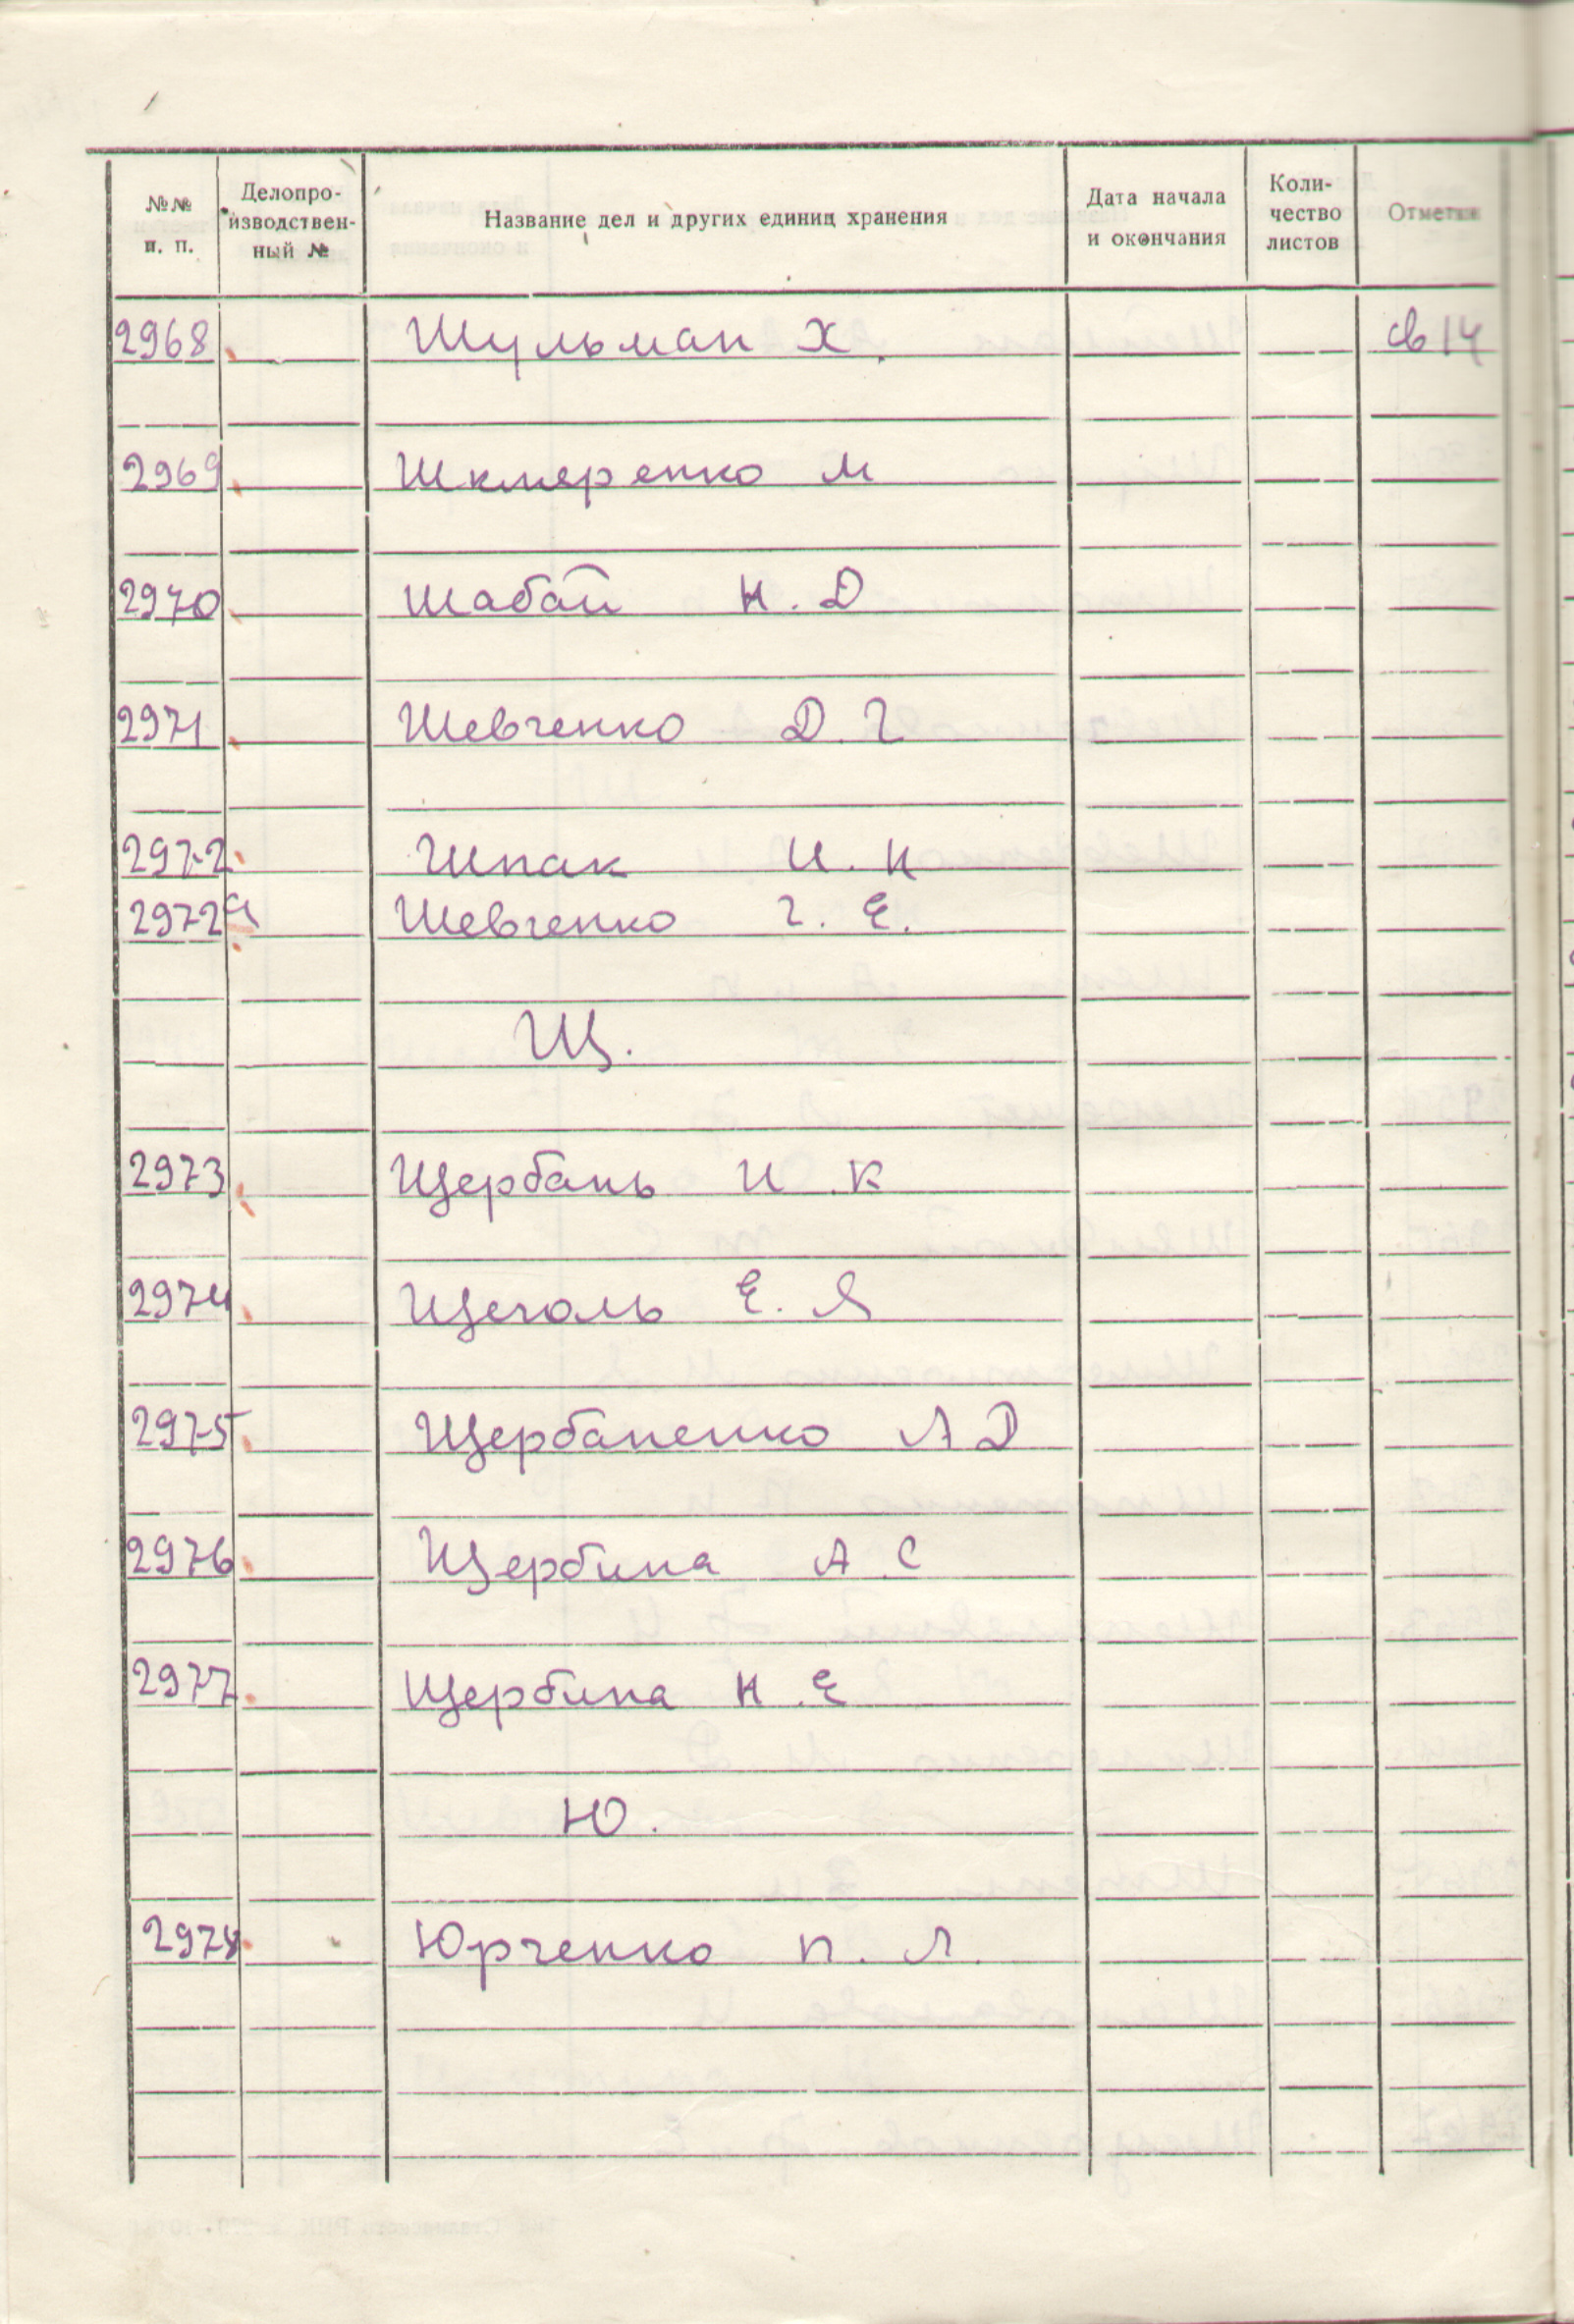 №№ п. п. Делопро- изводствен- ный № Название дел и других единиц хранения Дата начала и окончания Коли- чество листов Отметки
2968 Шульман Х. св 14
2969 М
2970 Шабай Н. Д
2971 Шевченко Д. Г
2972 Шпак И. Н
2972а Шевченко Г. Е.
Щ.
2973 Щербань И К
2974 Щеголь Е. Я
2975 Щербаненко А Д
2976 Щербина А С
2977 Щербина Н. Е
Ю.
2978 Юрченко П. Л.